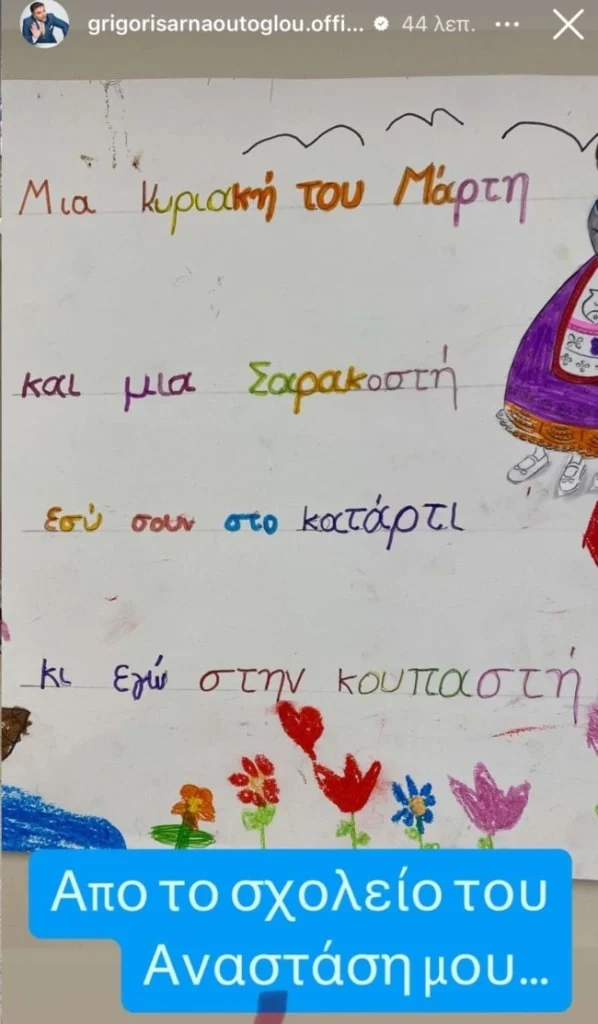 grigorisarnaoutoglou.offi... 44 λεπ.
Μια Κυριακή του Μάρτη
και μια Σαρακοστή
εσύ σουν στο κατάρτι
κι εγώ στην κουπαστή
Απο το σχολείο του
Αναστάση μου...